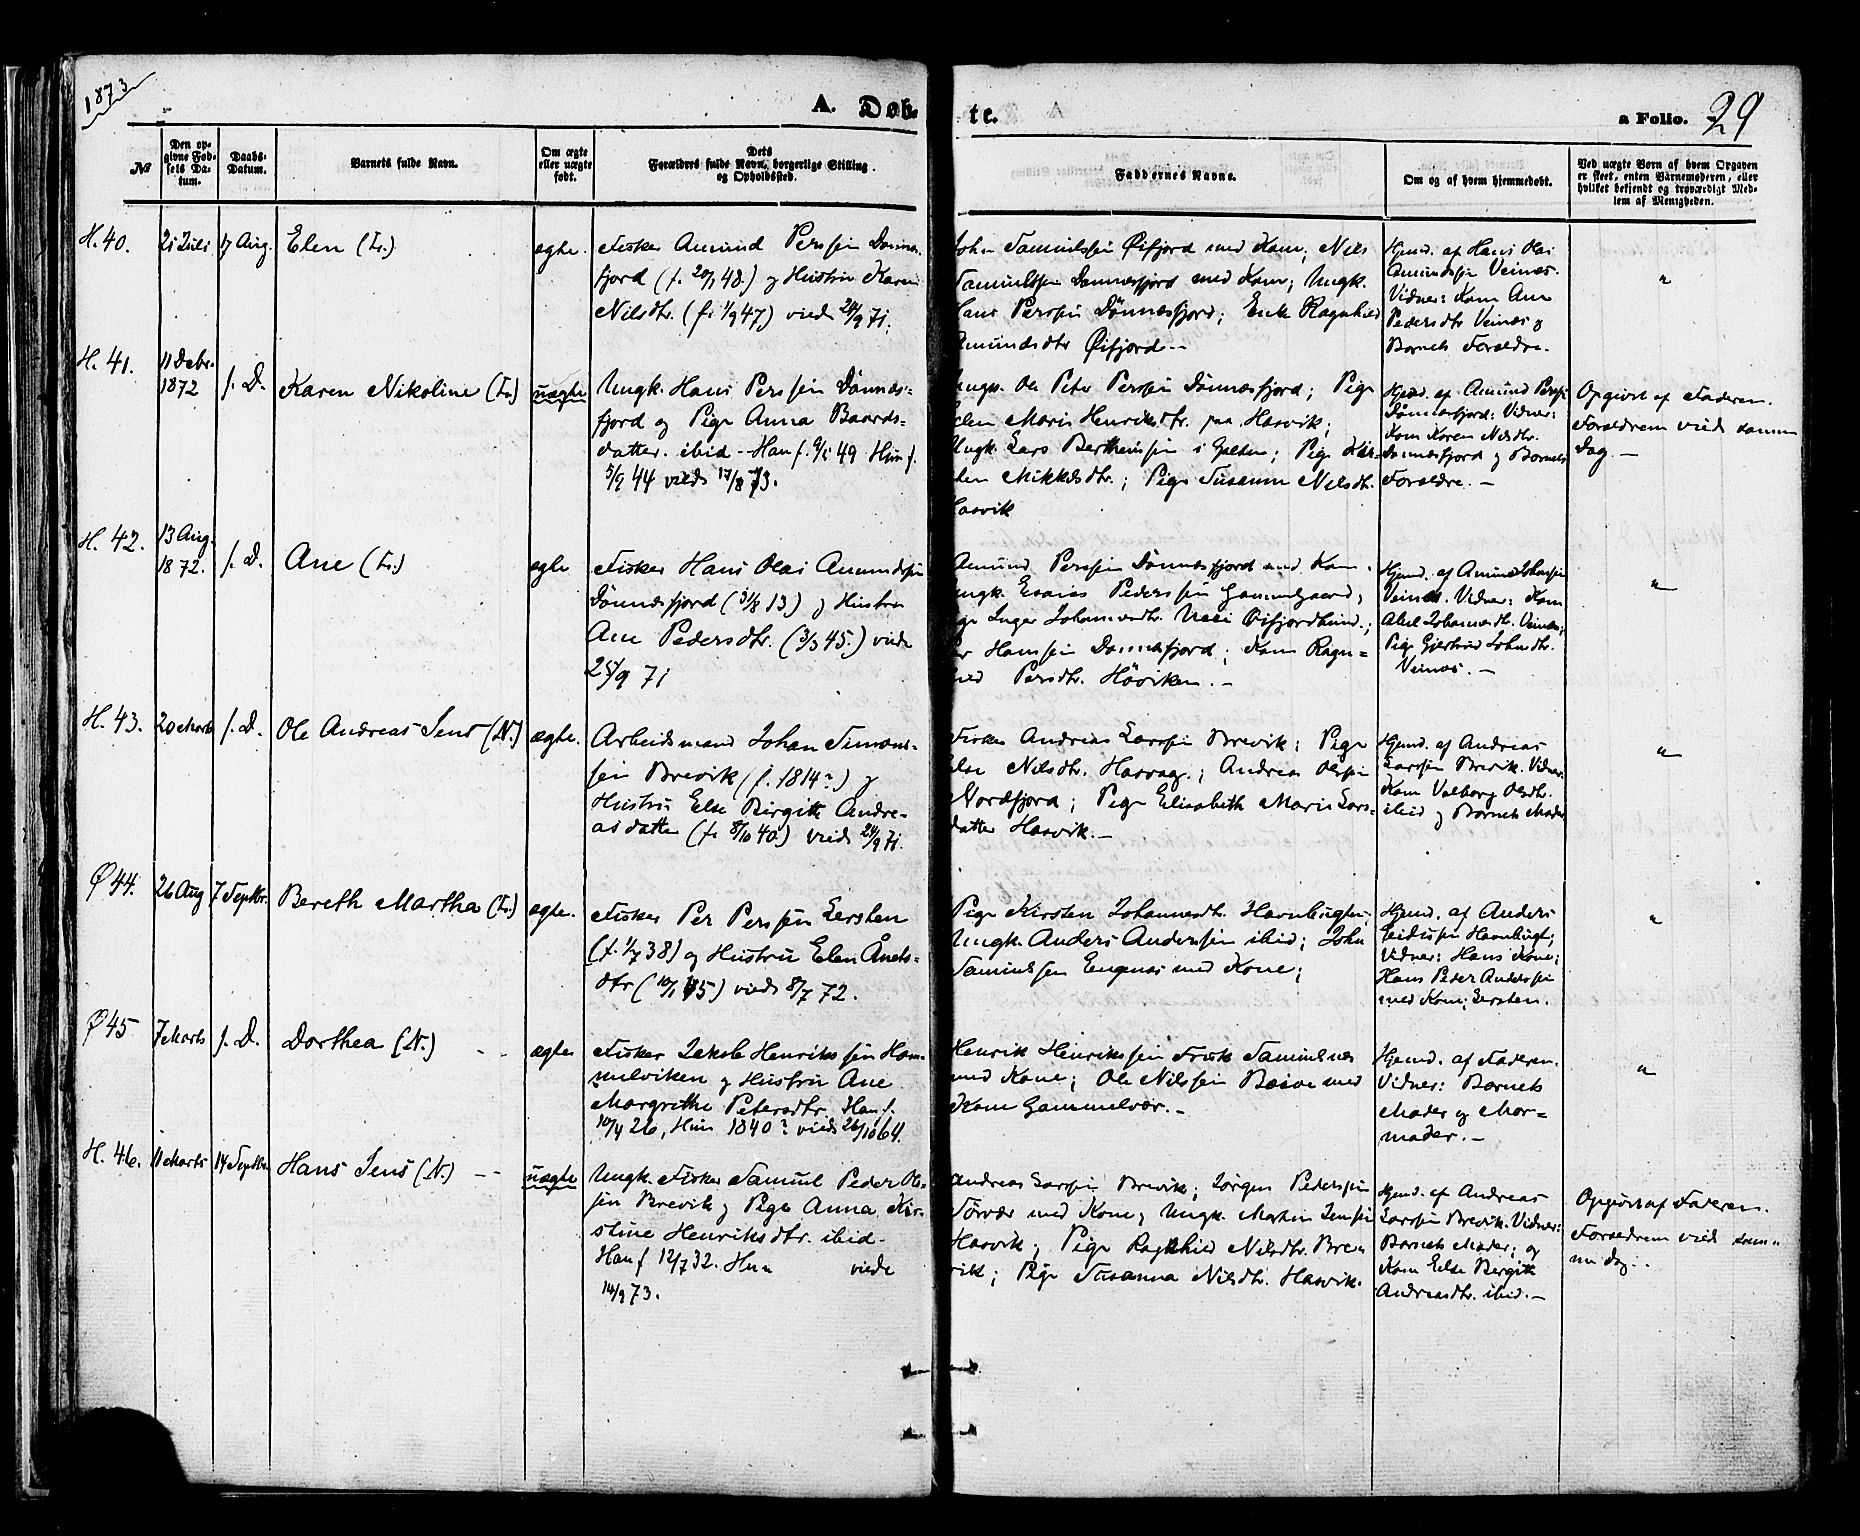 1873
A. Døb-
te.
a Folio. 29
№
Den op-
givne Fød-
sels Da-
tum.
Daabs-
Datum.
Barnets fulde Navn.
Om ægte
eller uægte
født.
Dets
Forældres fulde Navn, borgerlige Stilling
og Opholdssted.
Faddernes Navne.
Om og af hvem hjemmedøbt.
Ved uægte Børn af hvem Opgaven
er skeet, enten Barnemoderen, eller
hvilket bekjendt og troværdigt Med-
lem af Menigheden.
H. 40.
21 Juli
17 Aug.
Elen (L.)
ægte.
Fisker Amund Perssen Dønnæs-
fjord (f. 20/1 48.) og Hustru Karen
Nilsdtr. (f. 1/9 47) viede 24/9 71.
John Samuelssen Øifjord med Kone; Nils
Samuelssen Dønnæsfjord med Kone; Ungk.
Hans Perssen Dønnæsfjord; Enke Ragnhild
Amundsdtr Øifjord.—
Hjemd. af Hans Olai
Amundssen Veinæs.
Vidner: Kone Ane
Pedersdtr Veinæs og
Barnets Forældre.
"
H. 41.
11 Decbr.
1872
s. D.
Karen Nikoline (L.)
uægte
Ungk. Hans Perssen Dønnæs-
fjord og Pige Anna Baards-
datter. ibid - Han f. 49 Hun f.
5/9 44 viede 17/8 73.
Ungk. Ole Peter Perssen Dønnæsfjord; Pige
Elen Marie Henriksdtr. paa Hasvik;
Ungk. Lars Berthinssen i ; Pige Kir-
sten Mikkelsdtr.; Pige Susanne Nilsdtr.
Hasvik
Hjemd. af Amund Perssen
Dønnæsfjord: Vidner:
Kone Karen Nilsdtr.
Dønnæsfjord og Barnets
Forældre.—
Opgivet af Faderen.
Forældrene viede samme
Dag.—
H. 42.
13 Aug.
1872.
s. D.
Ane (L.)
ægte
Fisker Hans Olai Amundssen
Dønnæsfjord (31/8 13) og Hustru
Ane Pedersdtr. (3/3 45.) viede
25/9 71
Amund Perssen Dønnæsfjord med Kone.
Ungk. Esaias Pederssen Gammelgaard;
Pige Inger Johannesdtr. Øifjordhund.;
Per Hanssen Dønnæsfjord; Kone Ragn-
hild Persdtr. Håviken.—
Hjemd. af Amund Johnssen
Veinæs. Vidner: Kone
Abel Johannesdtr. Veinæs;
Pige Gjertrud Johnsdtr.
Veinæs.—
"
H. 43.
20 Marts
s. D.
Ole Andreas Jens (N.)
ægte.
Arbeidsmand Johan Simons-
sen Brevik (f. 1814?) og
Hustru Else Birgitte Andre-
asdatter (f. 8/10 40.) viede 24/9 71.
Fisker Andreas Larssen Brevik; Pige
Else Nilsdtr. Hasvag.; Andreas Olssen
Nordfjord; Pige Elisabeth Marie Lars-
datter Hasvik.—
Hjemd. af Andreas
Larssen Brevik. Vidner:
Kone Valborg Olsdtr.
ibid og Barnets Moder
"
Ø 44.
26 Aug
7 Septbr.
Bereth Martha (L.)
ægte.
Fisker Per Perssen Lersten
(f. 1/7 38) og Hustru Elen Anets-
dtr (10/1 45) viede 8/7 72.
Pige Kirsten Johannesdtr. Havnbugten;
Ungk. Anders Anderssen ibid; John
Samuelssen Engenæs med Kone;
Hjemd. af Anders
Havnbugt;
Vidner: Hans Kone;
Hans Peder Anderssen
med Kone; Lersten.
"
Ø 45
7 Marts
s. D.
Dorthea (N.)
ægte
Fisker Jakob Henrikssen Ham-
melviken og Hustru Ane
Margrethe Petersdtr. Han f.
10/4 26, Hun 1840? viede 26/10 64.
Henrik Henrikssen Frisk Samuelnæs
med Kone; Ole Nilssen Basve med
Kone Gammelvær.—
Hjemd. af Faderen.
Vidner: Barnets
Moder og Mor-
moder.—
"
H. 46.
11 Marts
14 Septbr.
Hans Jens (N.)
uægte
Ungk. Fisker Samuel Peder Ols-
sen Brevik og Pige Anna Kir-
stine Henriksdtr. ibid-
Han f 12/7 32. Hun viede
14/9 73.
Andreas Larssen Brevik; Jørgen Pederssen
Sørvær med Kone; Ungk. Martin Jenssen
Hasvik; Pige Ragnhild Nilsdtr. Bre-
vik; Pige Susanna Nilsdtr. Hasvik.
Hjemd. af Andreas
Larssen Brevik. Vidner:
Barnets Moder; og
Kone Else Bergitte
Andreasdtr. ibid.—
Opgivet af Faderen.
Forældrene viede sam-
me Dag.